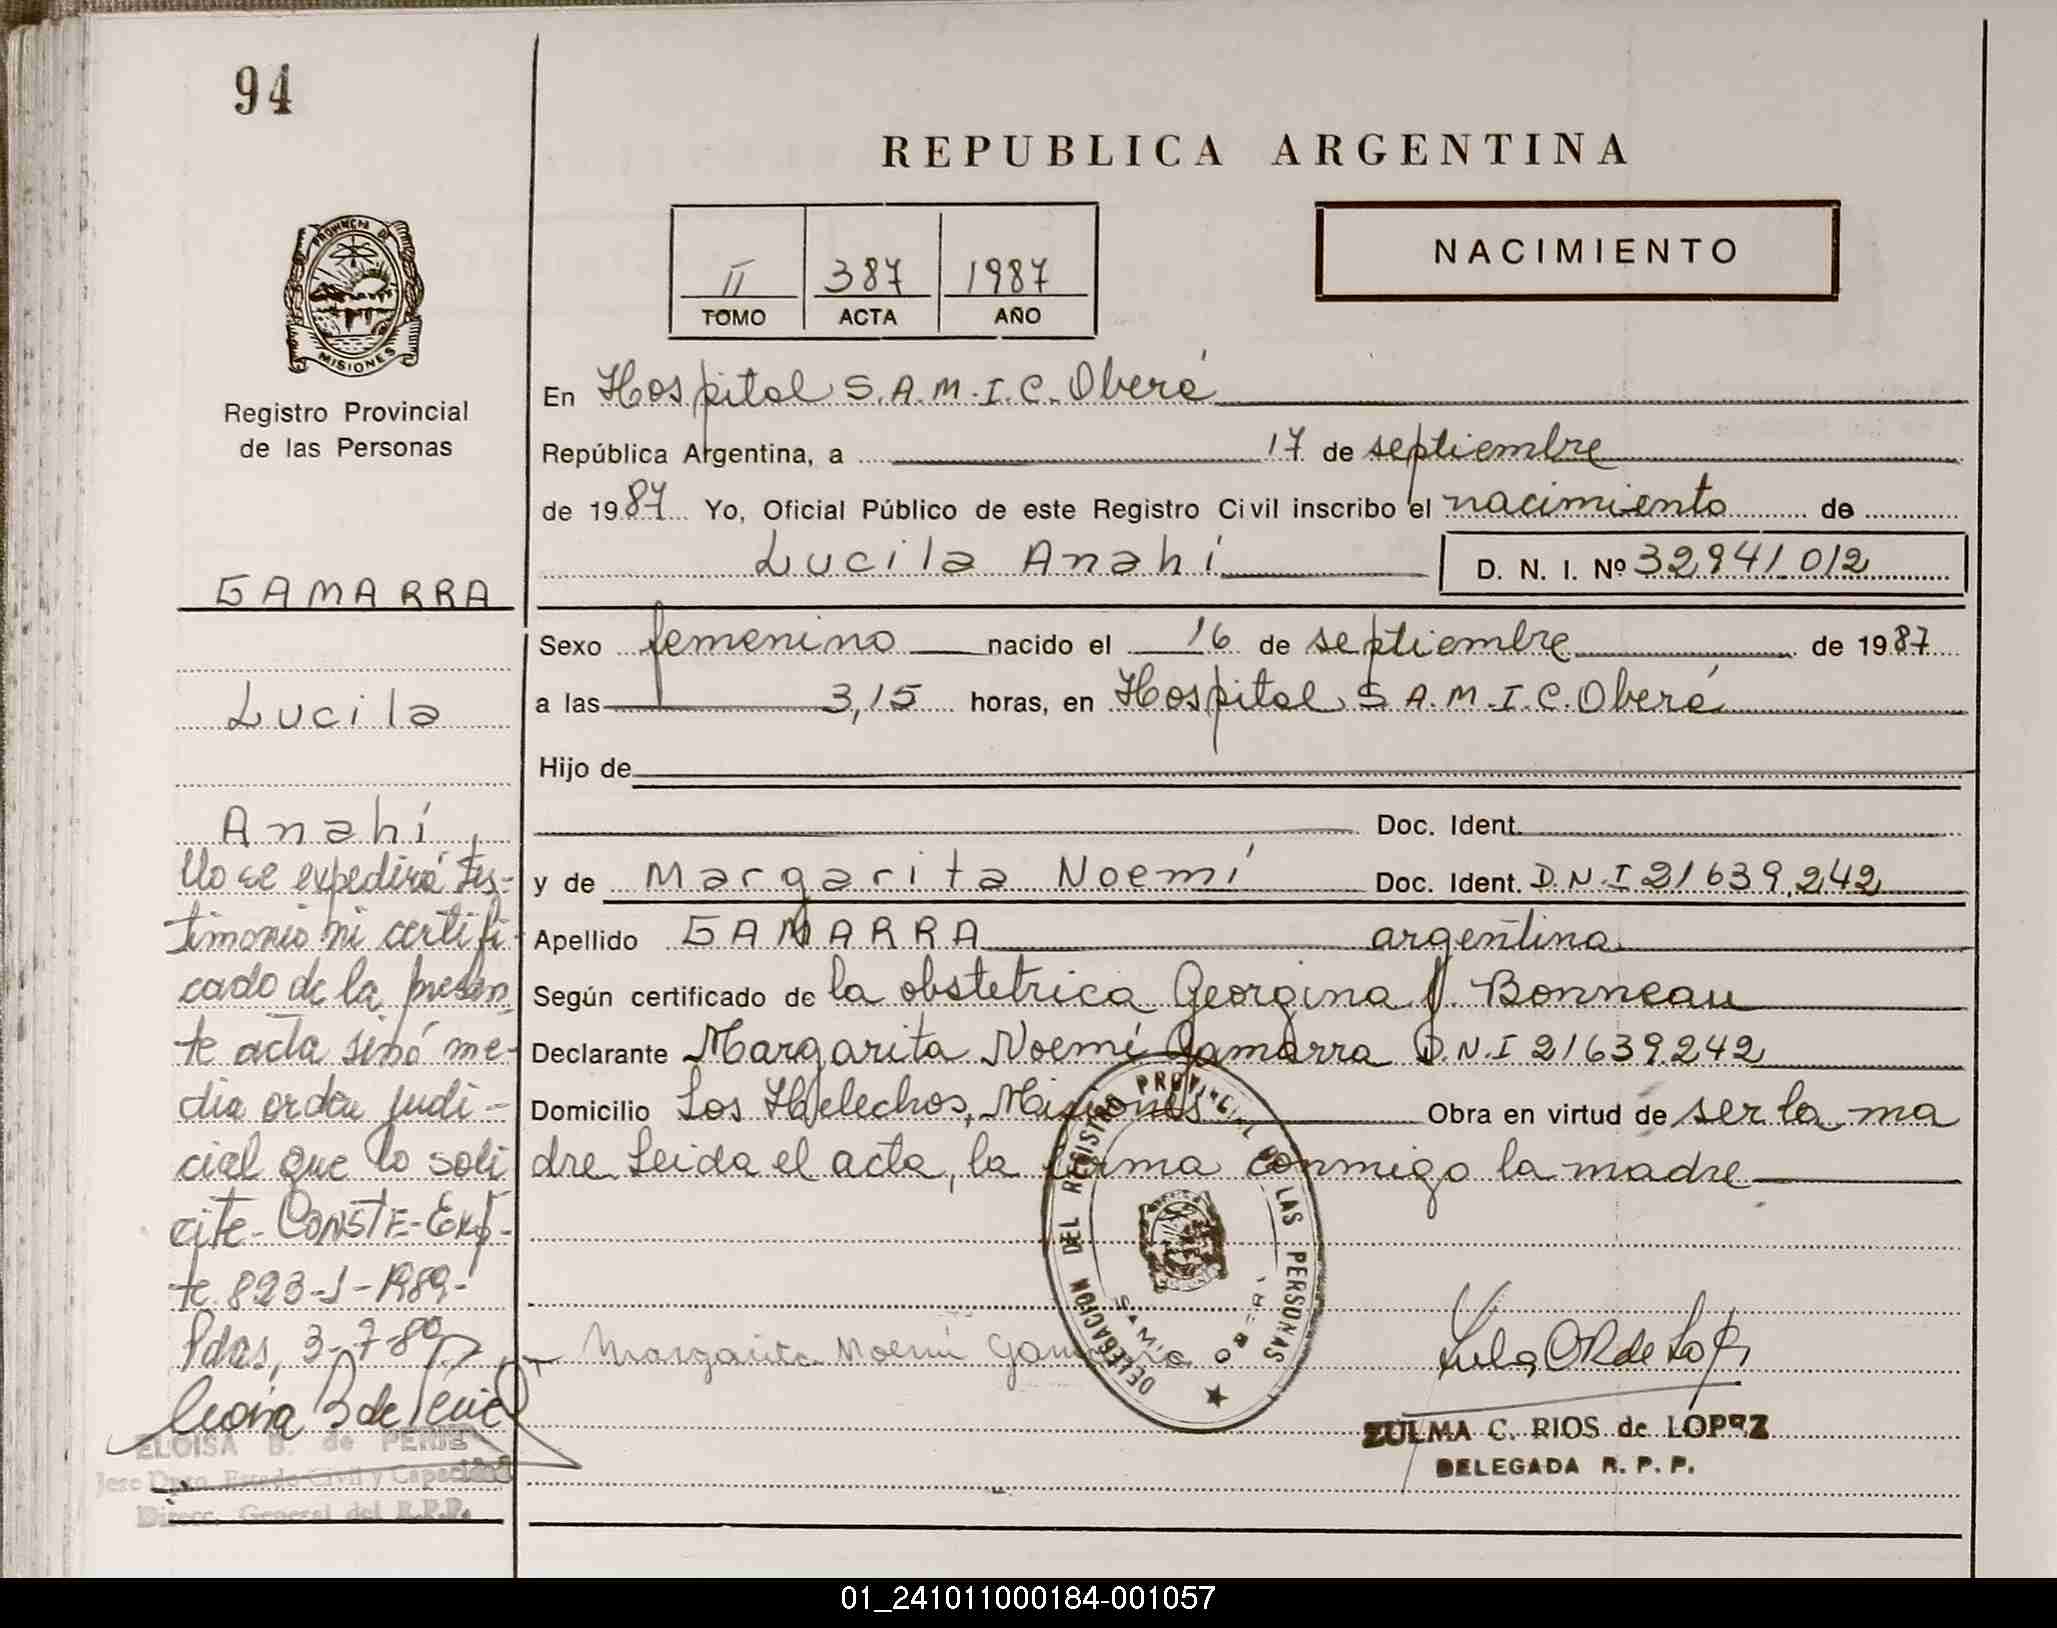 94
REPUBLICA ARGENTINA
NACIMIENTO
II 387 1987
TOMO ACTA AÑO
PROVINCIA DE MISIONES
Registro Provincial
de las Personas
GAMARRA
Lucila
Anahí
No se expedirá tes-
timonio ni certifi-
cado de la presen
te acta sinó me-
dia orden judi-
cial que lo soli
cite- CONSTE- Exp-
te. 823-J-1989-
Pdas, 3-7-89
ELOISA B. de PERIE
Jefe Dpto. Estado Civil y Capacidad
Direcc. General del R.P.P.
En Hospital S.A.M.I.C. Oberá
República Argentina, a 17 de septiembre
de 1987 Yo, Oficial Público de este Registro Civil inscribo el nacimiento de
Lucila Anahí D. N. I. Nº 32941012
Sexo femenino nacido el 16 de septiembre de 1987
a las 3,15 horas, en Hospital S.A.M.I.C. Oberá
Hijo de
Doc. Ident.
y de Margarita Noemí Doc. Ident. D.N.I 21639,242
Apellido GAMARRA argentina
Según certificado de la obstetrica Georgina J. Bonneau
Declarante Margarita Noemí Gamarra D.N.I 21639242
Domicilio Los Helechos, Misiones Obra en virtud de ser la ma
dre Leida el acta, la firma conmigo la madre
DELEGACION DEL REGISTRO PROVINCIAL DE LAS PERSONAS
Margarita Noemí Gamarra
ZULMA C. RIOS de LOPEZ
DELEGADA R. P. P.
01_241011000184-001057